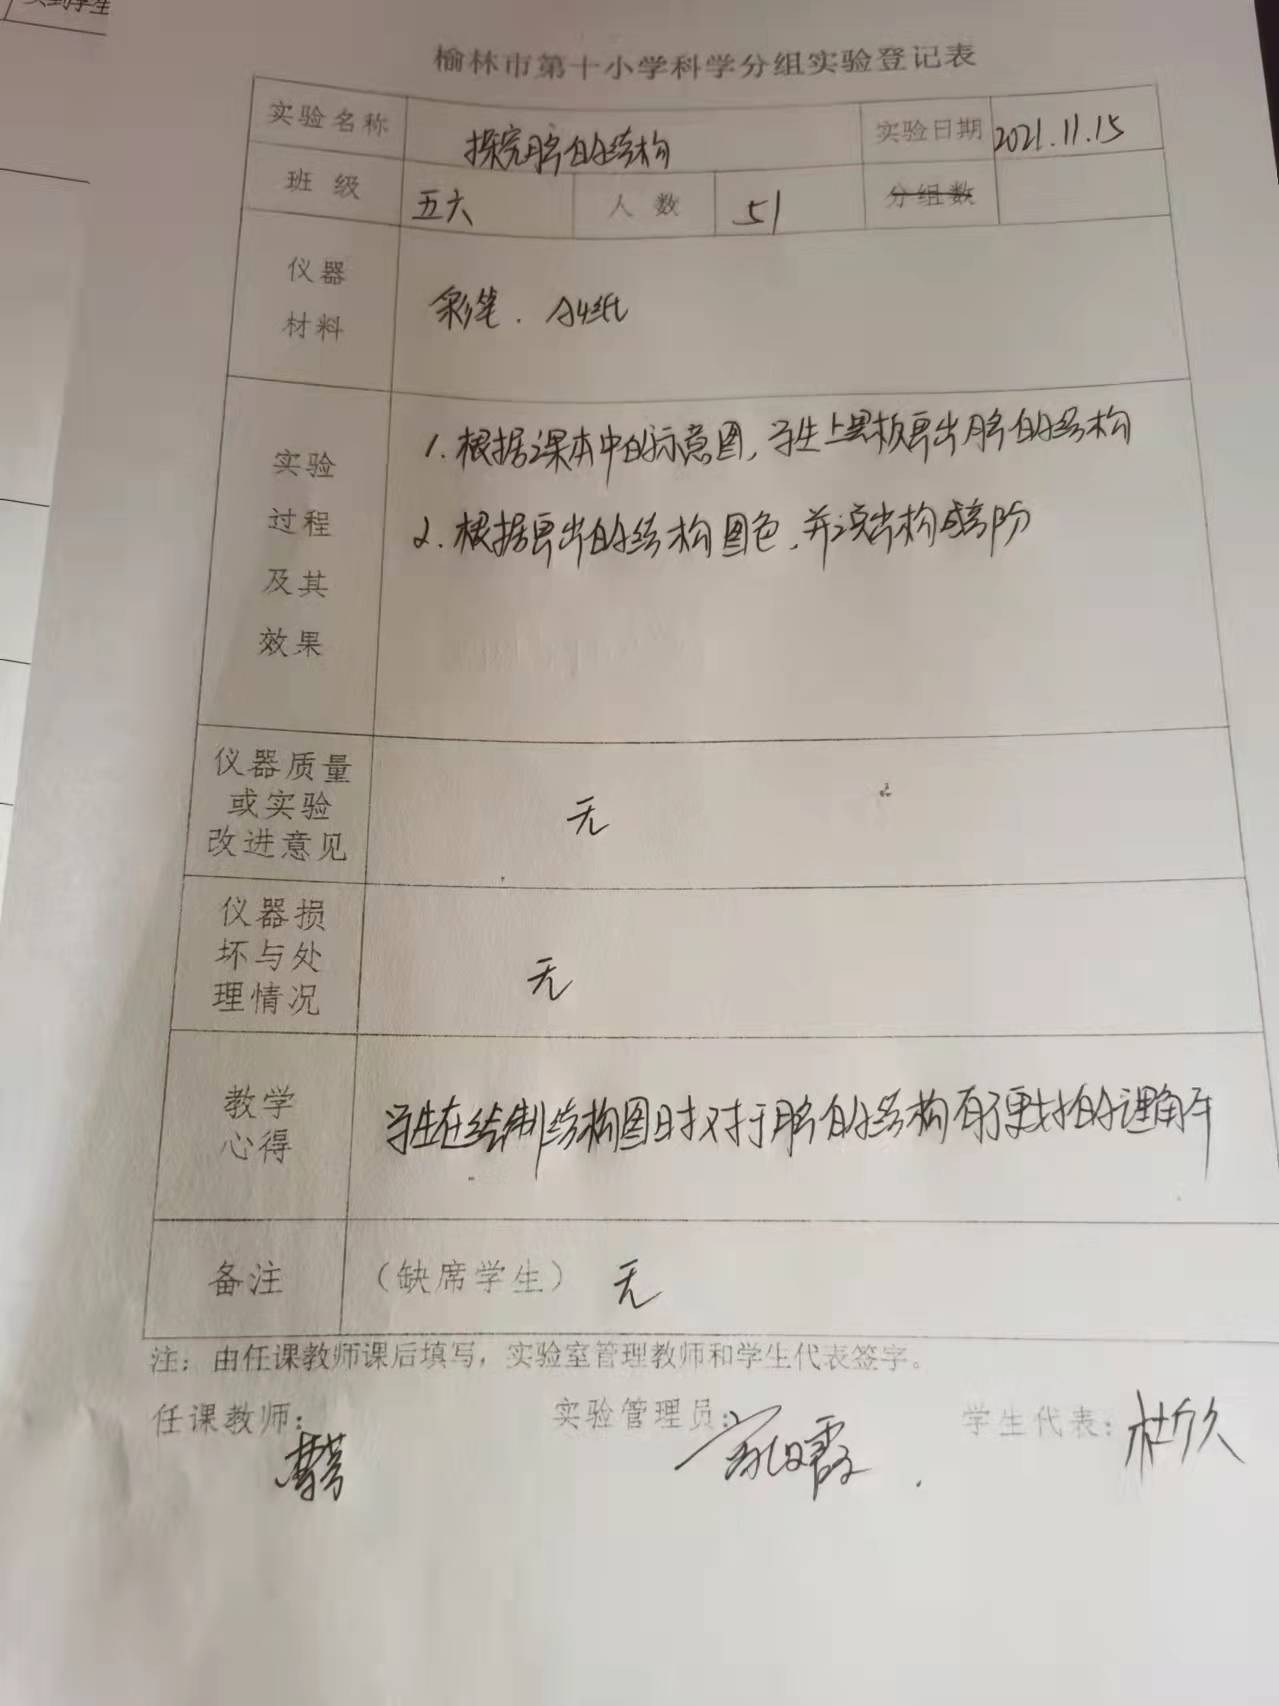 榆林市第十小学科学分组实验登记表
实验名称 探究脑的结构 实验日期 2021.11.15
班级 五六 人数 51 分组数
仪器
材料
彩笔. A4纸
实验
过程
及其
效果
1.根据课本中的示意图,学生上黑板画出脑的结构
2.根据画出的结构图色,并说出构成部分
仪器质量
或实验
改进意见
无
仪器损
坏与处
理情况
无
教学
心得
学生在绘制结构图时对于脑的结构有了更好的理解
备注 (缺席学生) 无
注：由任课教师课后填写，实验室管理教师和学生代表签字。
任课教师： 实验管理员： 学生代表：杜欣